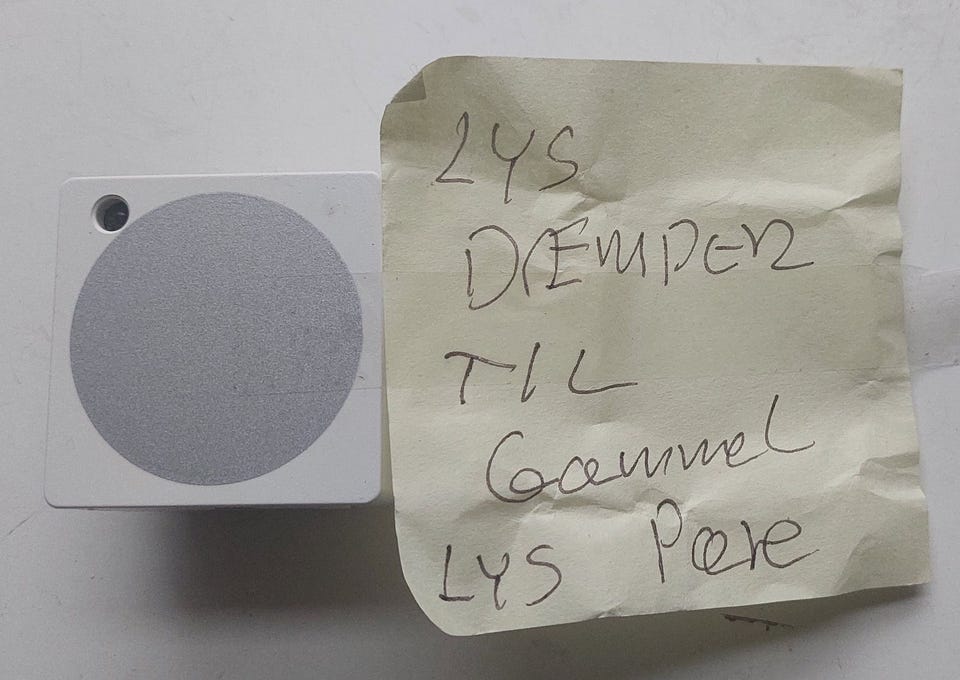 LYS
DÆMPER
TIL
Gammel
LYS Pære